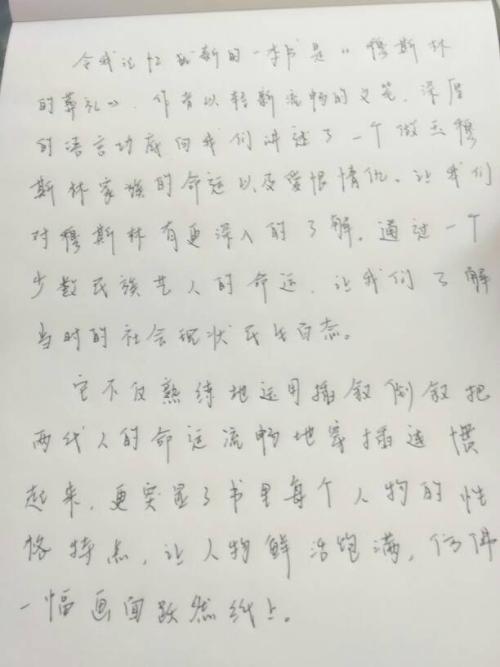 令我记忆犹新的一本书是《穆斯林
的葬礼》，作者以轻新流畅的文笔，深厚
的语言功底向我们讲述了一个做玉穆
斯林家族的命运以及爱恨情仇。让我们
对穆斯林有更深入的了解，通过一个
少数民族艺人的命运，让我们了解
当时的社会现状民生百态。
它不仅熟练地运用插叙倒叙把
两代人的命运流畅地穿插连惯
起来，更突显了书里每个人物的性
格特点，让人物鲜活饱满，仿佛
一幅画面跃然纸上。